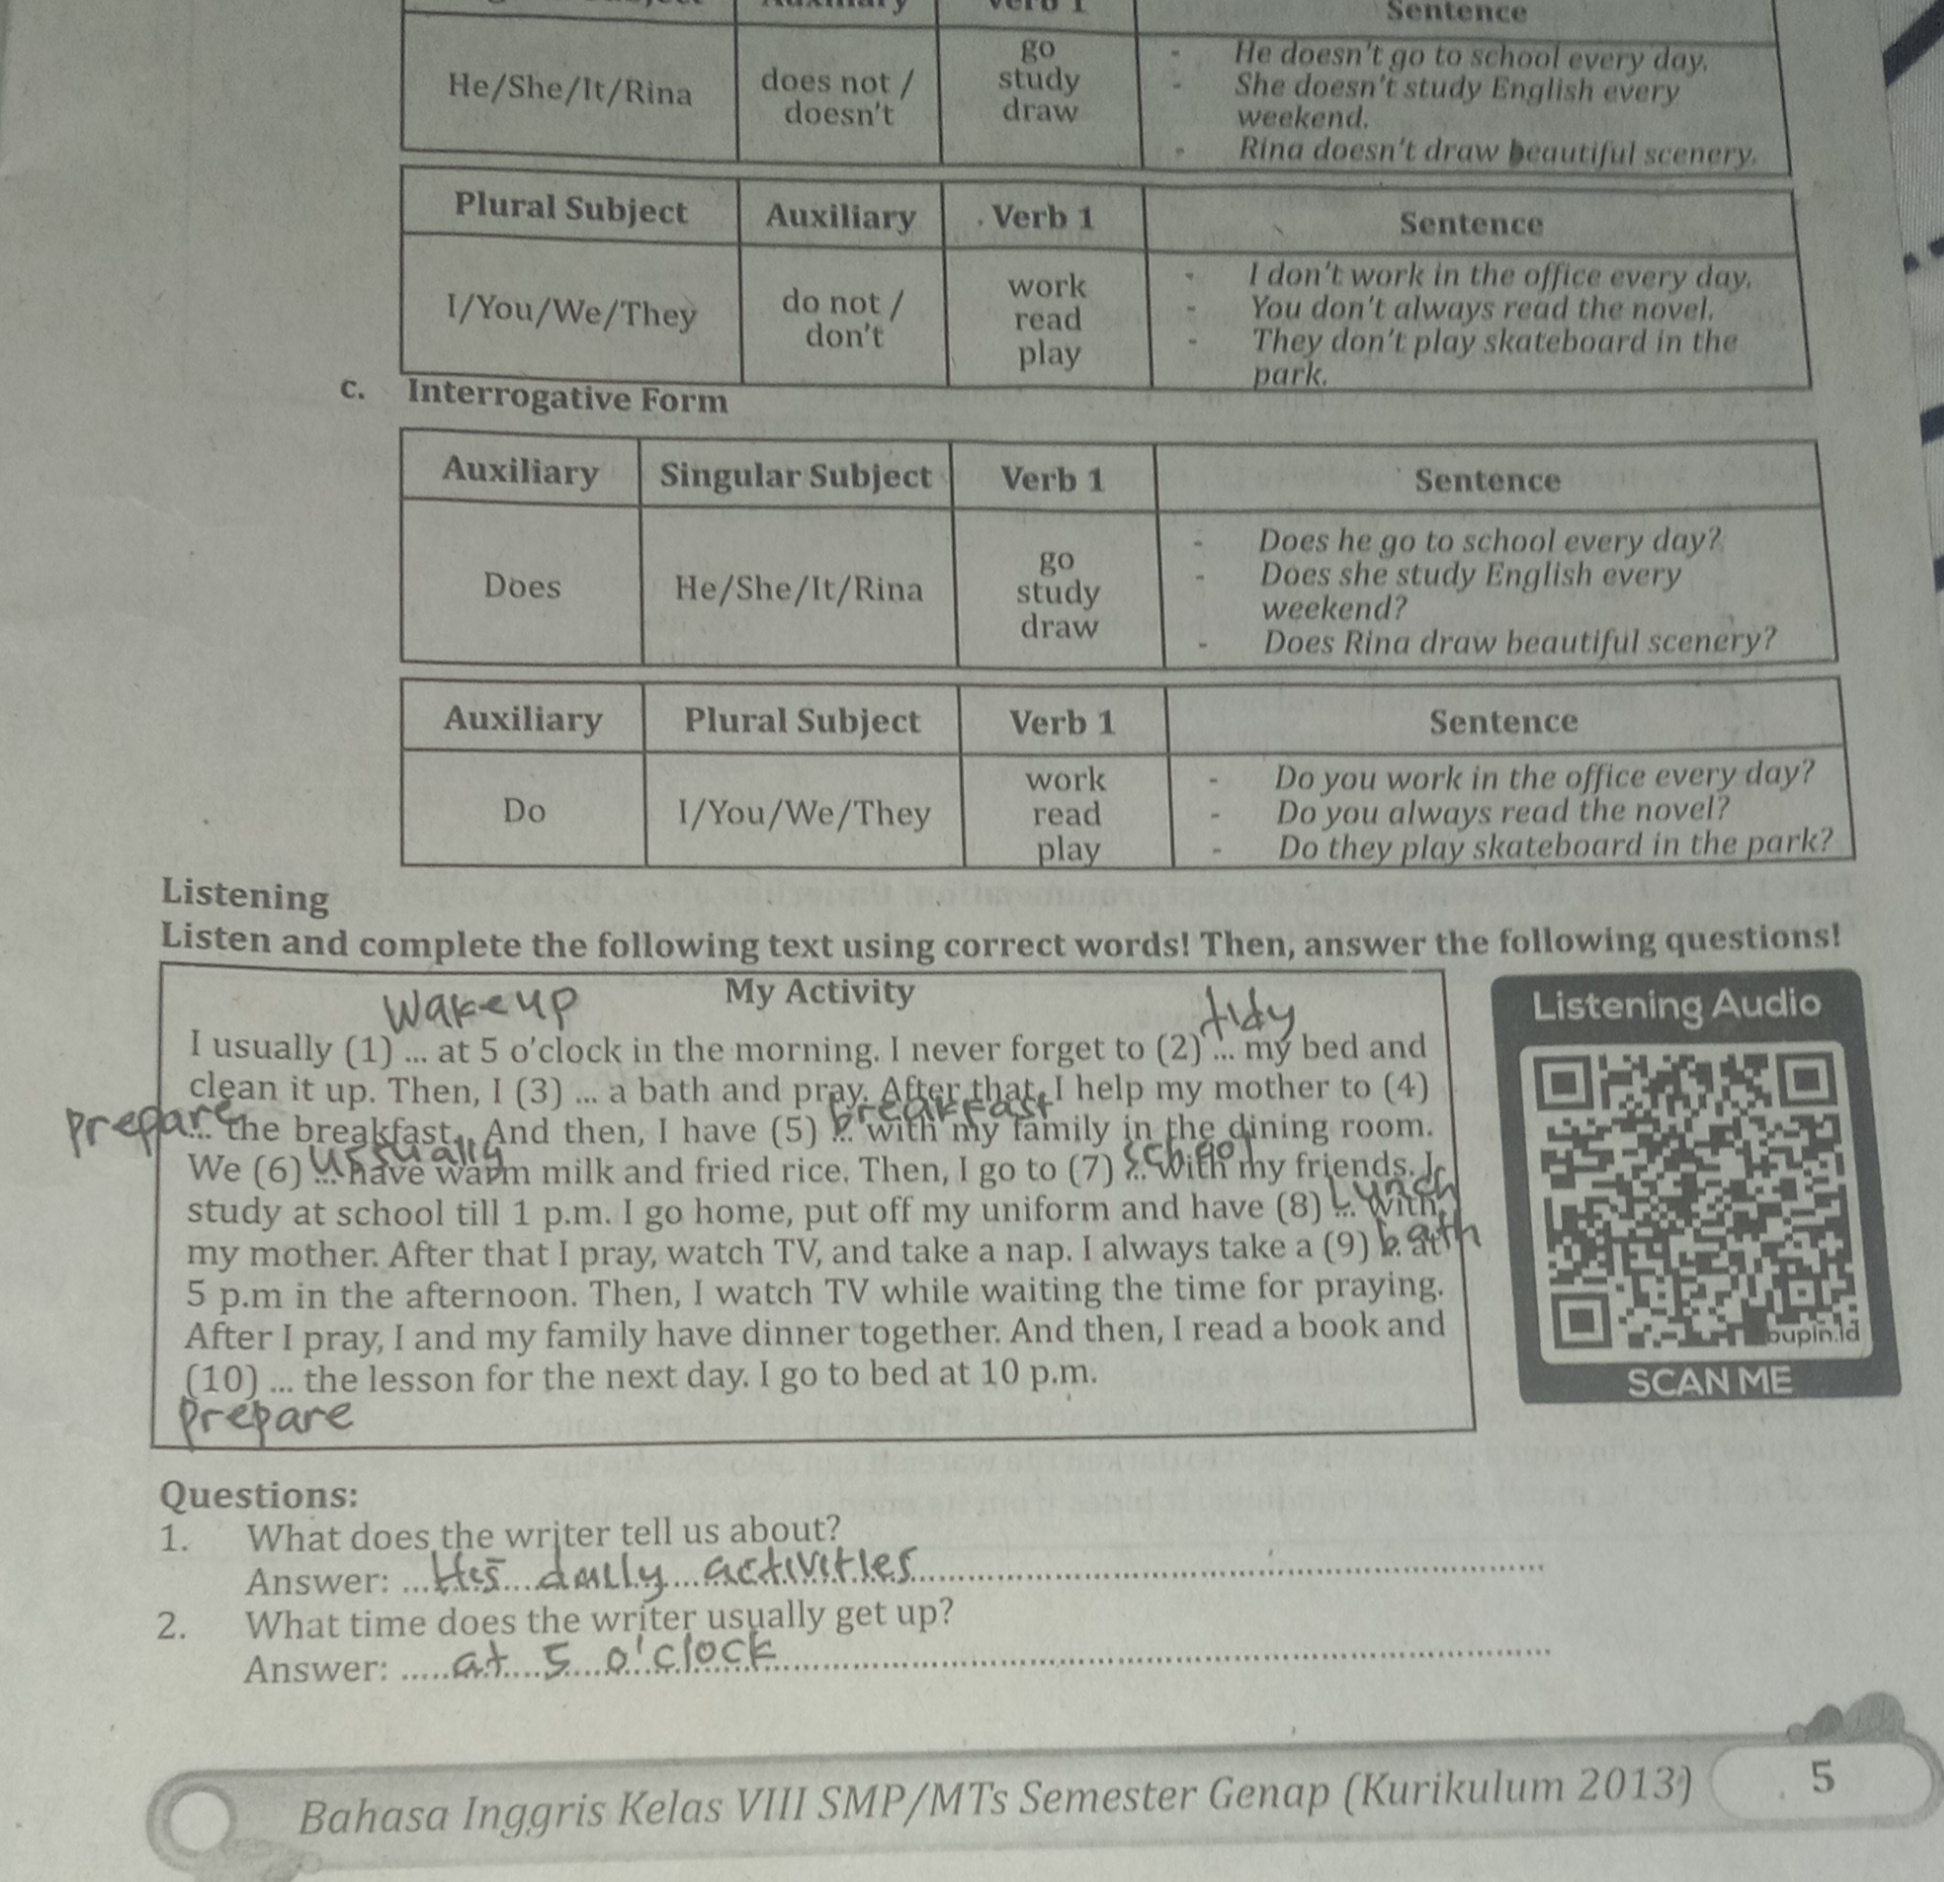 Verb 1 Sentence
He/She/It/Rina
does not /
doesn't
go
study
draw
- He doesn't go to school every day.
- She doesn't study English every
weekend.
- Rina doesn't draw beautiful scenery.
Plural Subject Auxiliary Verb 1 Sentence
I/You/We/They
do not /
don't
work
read
play
- I don't work in the office every day.
- You don't always read the novel.
- They don't play skateboard in the
park.
c. Interrogative Form
Auxiliary Singular Subject Verb 1 Sentence
Does
He/She/It/Rina
go
study
draw
- Does he go to school every day?
- Does she study English every
weekend?
- Does Rina draw beautiful scenery?
Auxiliary Plural Subject Verb 1 Sentence
Do
I/You/We/They
work
read
play
- Do you work in the office every day?
- Do you always read the novel?
- Do they play skateboard in the park?
Listening
Listen and complete the following text using correct words! Then, answer the following questions!
My Activity
Wake up tidy
I usually (1) ... at 5 o'clock in the morning. I never forget to (2) ... my bed and
clean it up. Then, I (3) ... a bath and pray. After that, I help my mother to (4)
Prepare breakfast
... the breakfast. And then, I have (5) ... with my family in the dining room.
ussually school
We (6) ... have warm milk and fried rice. Then, I go to (7) ... with my friends. I
Lunch
study at school till 1 p.m. I go home, put off my uniform and have (8) ... with
bath
my mother. After that I pray, watch TV, and take a nap. I always take a (9) ... at
5 p.m in the afternoon. Then, I watch TV while waiting the time for praying.
After I pray, I and my family have dinner together. And then, I read a book and
(10) ... the lesson for the next day. I go to bed at 10 p.m.
Prepare
Listening Audio
bupin.id
SCAN ME
Questions:
1. What does the writer tell us about?
Answer: His daily activities
2. What time does the writer usually get up?
Answer: at 5 o'clock
Bahasa Inggris Kelas VIII SMP/MTs Semester Genap (Kurikulum 2013) 5